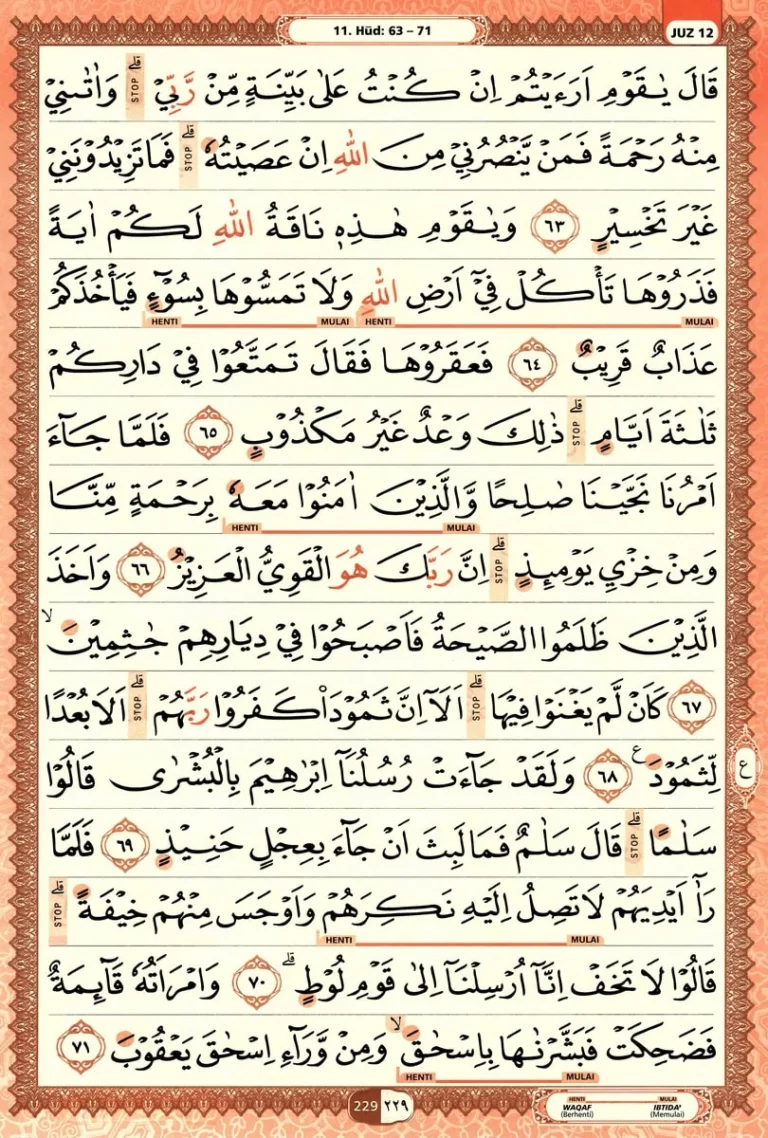 11. Hūd: 63 – 71
JUZ 12
قَالَ يٰقَوْمِ اَرَءَيْتُمْ اِنْ كُنْتُ عَلٰى بَيِّنَةٍ مِّنْ رَّبِّيْ ۗ STOP وَاٰتٰىنِيْ
مِنْهُ رَحْمَةً فَمَنْ يَّنْصُرُنِيْ مِنَ اللّٰهِ اِنْ عَصَيْتُهٗ ۗ STOP فَمَا تَزِيْدُوْنَنِيْ
غَيْرَ تَخْسِيْرٍ ٦٣ وَيٰقَوْمِ هٰذِهٖ نَاقَةُ اللّٰهِ لَكُمْ اٰيَةً
فَذَرُوْهَا تَأْكُلْ فِيْٓ اَرْضِ اللّٰهِ وَلَا تَمَسُّوْهَا بِسُوْۤءٍ فَيَأْخُذَكُمْ
MULAI HENTI MULAI HENTI
عَذَابٌ قَرِيْبٌ ٦٤ فَعَقَرُوْهَا فَقَالَ تَمَتَّعُوْا فِيْ دَارِكُمْ
ثَلٰثَةَ اَيَّامٍ ۗ STOP ذٰلِكَ وَعْدٌ غَيْرُ مَكْذُوْبٍ ٦٥ فَلَمَّا جَاۤءَ
اَمْرُنَا نَجَّيْنَا صٰلِحًا وَّالَّذِيْنَ اٰمَنُوْا مَعَهٗ بِرَحْمَةٍ مِّنَّا
MULAI HENTI
وَمِنْ خِزْيِ يَوْمِىِٕذٍ ۗ STOP اِنَّ رَبَّكَ هُوَ الْقَوِيُّ الْعَزِيْزُ ٦٦ وَاَخَذَ
الَّذِيْنَ ظَلَمُوا الصَّيْحَةُ فَاَصْبَحُوْا فِيْ دِيَارِهِمْ جٰثِمِيْنَ ۙ
٦٧ كَاَنْ لَّمْ يَغْنَوْا فِيْهَا ۗ STOP اَلَآ اِنَّ ثَمُوْدَا۟ كَفَرُوْا رَبَّهُمْ ۗ STOP اَلَا بُعْدًا
لِّثَمُوْدَ ࣖ ٦٨ وَلَقَدْ جَاۤءَتْ رُسُلُنَآ اِبْرٰهِيْمَ بِالْبُشْرٰى قَالُوْا
ع
سَلٰمًا ۗ STOP قَالَ سَلٰمٌ فَمَا لَبِثَ اَنْ جَاۤءَ بِعِجْلٍ حَنِيْذٍ ٦٩ فَلَمَّا
رَآٰ اَيْدِيَهُمْ لَا تَصِلُ اِلَيْهِ نَكِرَهُمْ وَاَوْجَسَ مِنْهُمْ خِيْفَةً ۗ STOP
MULAI HENTI
قَالُوْا لَا تَخَفْ اِنَّآ اُرْسِلْنَآ اِلٰى قَوْمِ لُوْطٍ ۗ ٧٠ وَامْرَاَتُهٗ قَاۤىِٕمَةٌ
فَضَحِكَتْ فَبَشَّرْنٰهَا بِاِسْحٰقَ ۙ وَمِنْ وَّرَاۤءِ اِسْحٰقَ يَعْقُوْبَ ٧١
MULAI HENTI
229 ٢٢٩
HENTI MULAI
WAQAF (Berhenti) IBTIDA' (Memulai)